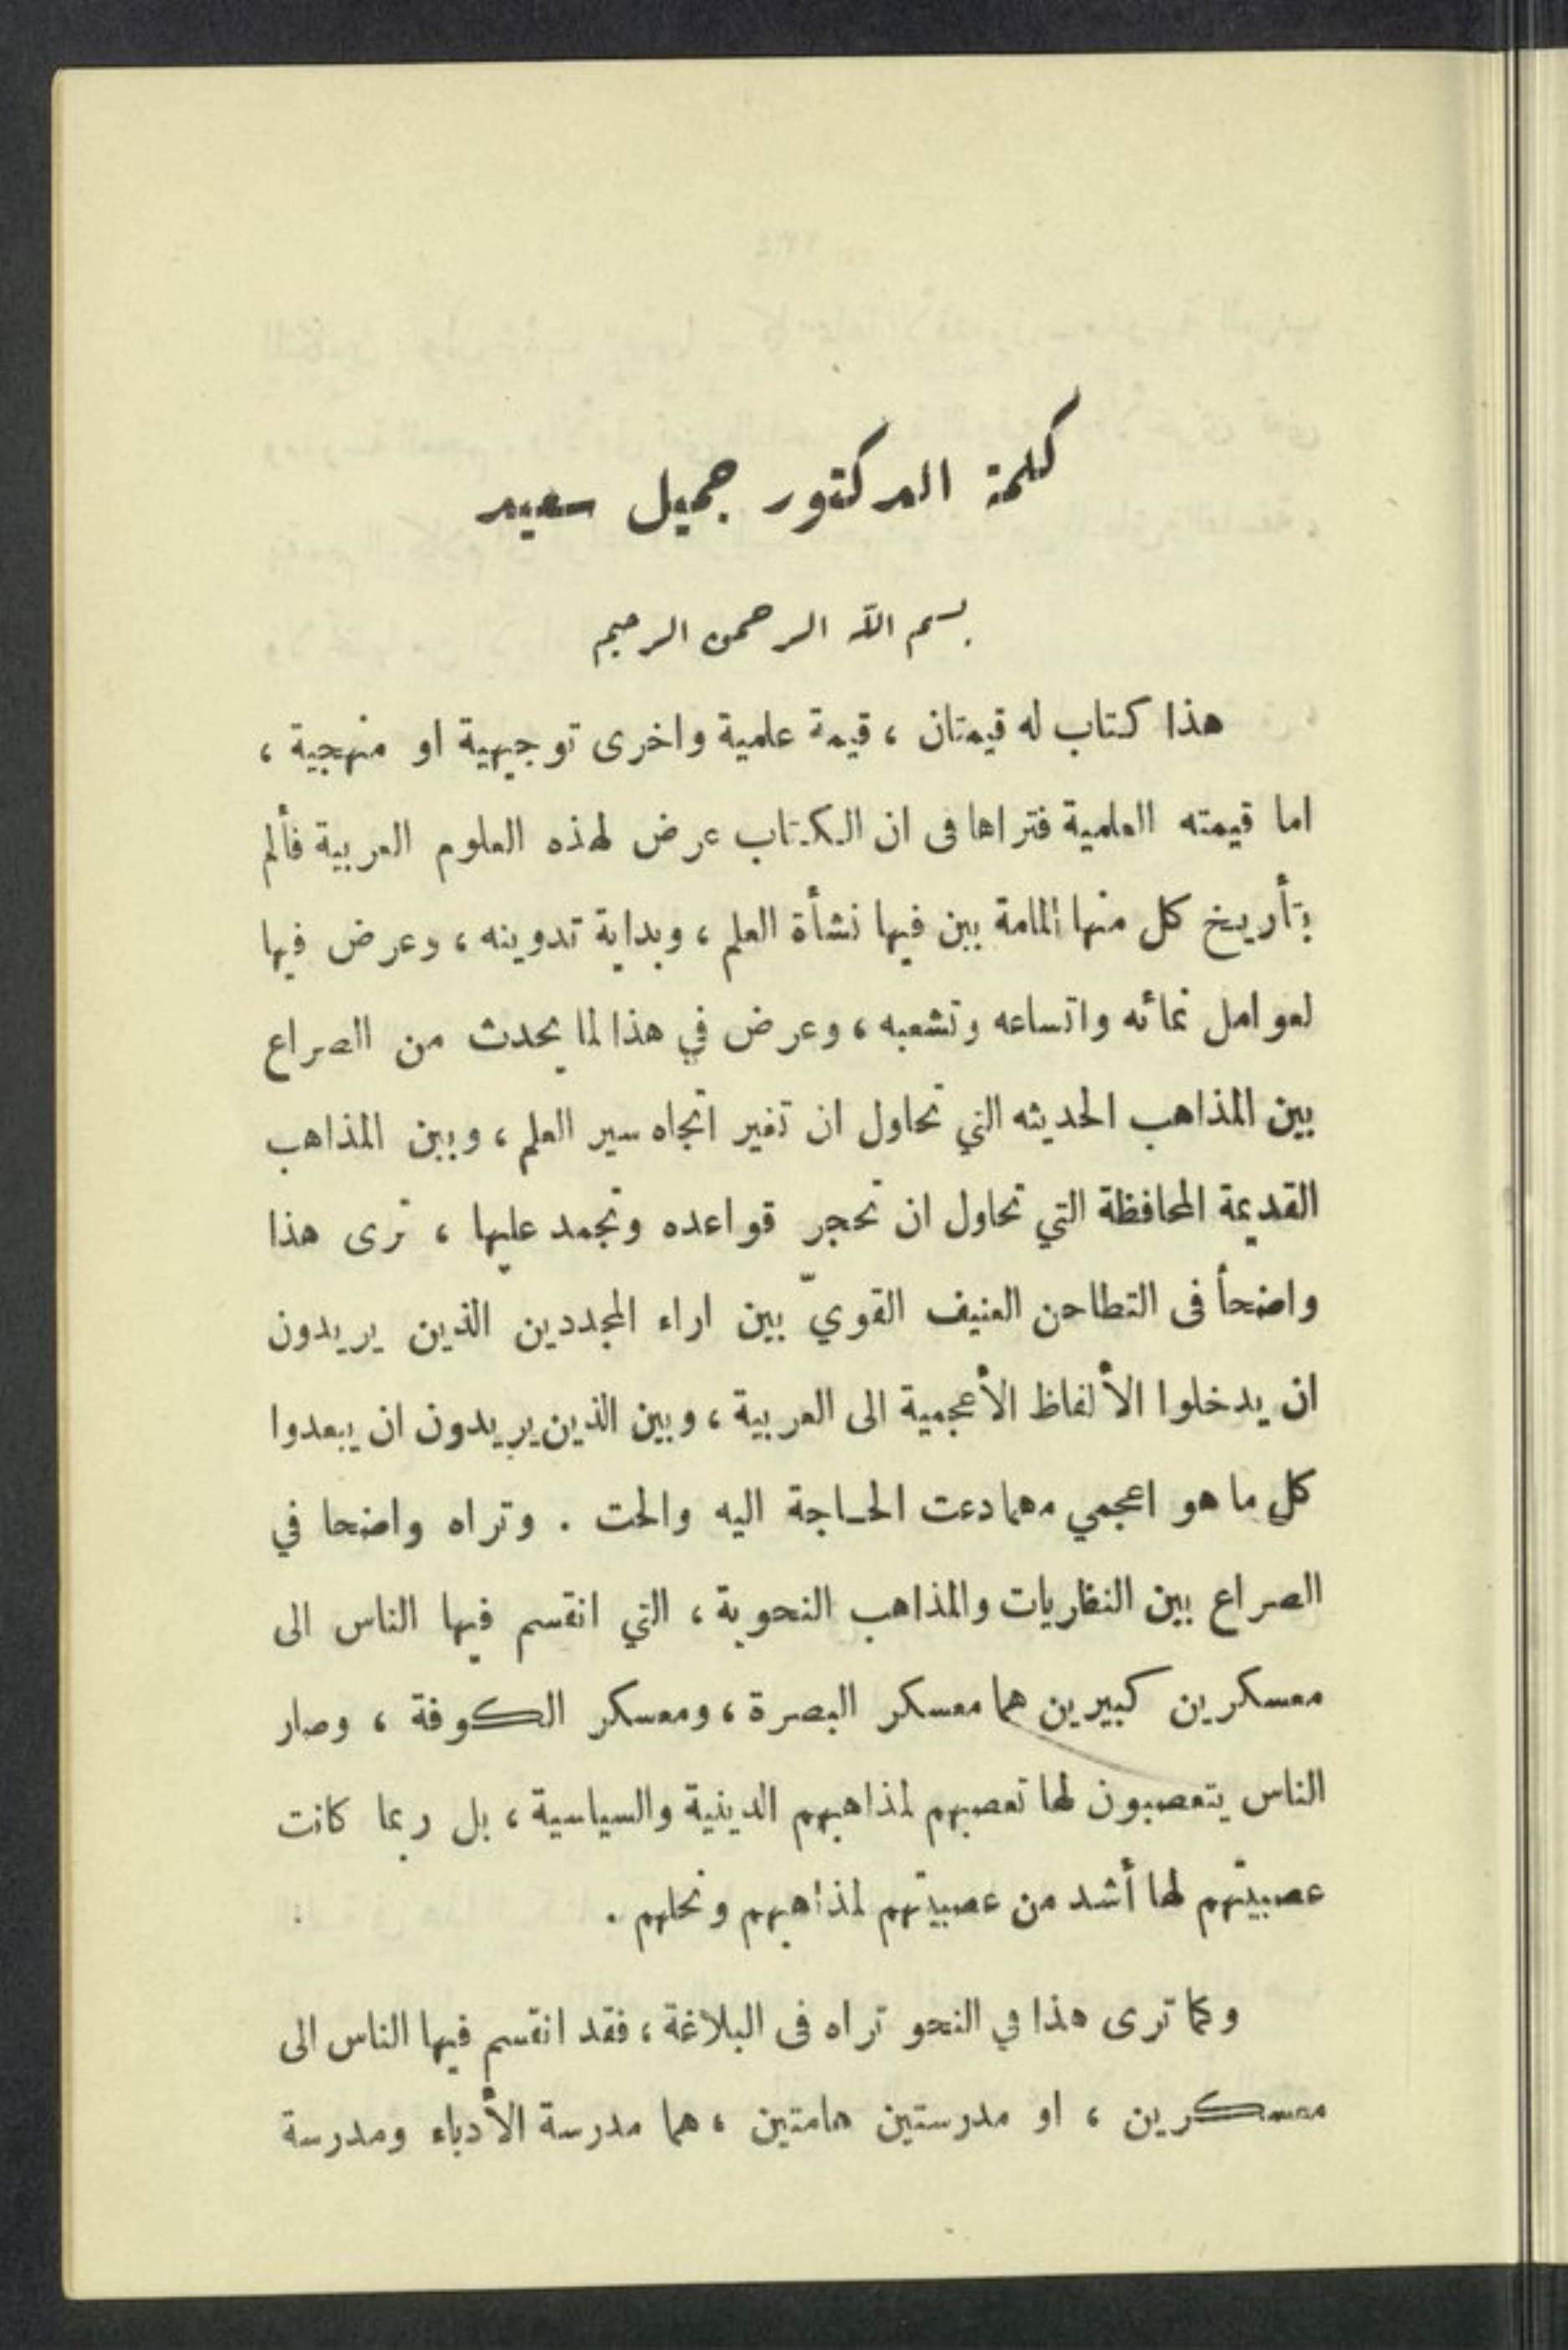 كلمة الدكتور جميل سعيد
بسم الله الرحمن الرحيم
هذا كتاب له قيمتان ، قيمة علمية واخرى توجيهية او منهجية ،
اما قيمته العلمية فتراها فى ان الكتاب عرض لهذه العلوم العربية فألم
بتأريخ كل منها المامة بين فيها نشأة العلم ، وبداية تدوينه ، وعرض فيها
لعوامل نمائه واتساعه وتشعبه ، وعرض في هذا لما يحدث من الصراع
بين المذاهب الحديثه التي تحاول ان تغير اتجاه سير العلم ، وبين المذاهب
القديمة المحافظة التي تحاول ان تحجر قواعده وتجمد عليها ، ترى هذا
واضحأ فى التطاحن العنيف القويّ بين اراء المجددين الذين يريدون
ان يدخلوا الألفاظ الأعجمية الى العربية ، وبين الذين يريدون ان يبعدوا
كل ما هو اعجمي مهما دعت الحاجة اليه والحت . وتراه واضحا في
الصراع بين النظريات والمذاهب النحوية ، التي انقسم فيها الناس الى
معسكرين كبيرين هما معسكر البصرة ، ومعسكر الكوفة ، وصار
الناس يتعصبون لها تعصبهم لمذاهبهم الدينية والسياسية ، بل ربما كانت
عصبيتهم لها أشد من عصبيتهم لمذاهبهم ونحلهم .
وكما ترى هذا في النحو تراه فى البلاغة ، فقد انقسم فيها الناس الى
معسكرين ، او مدرستين هامتين ، هما مدرسة الأدباء ومدرسة